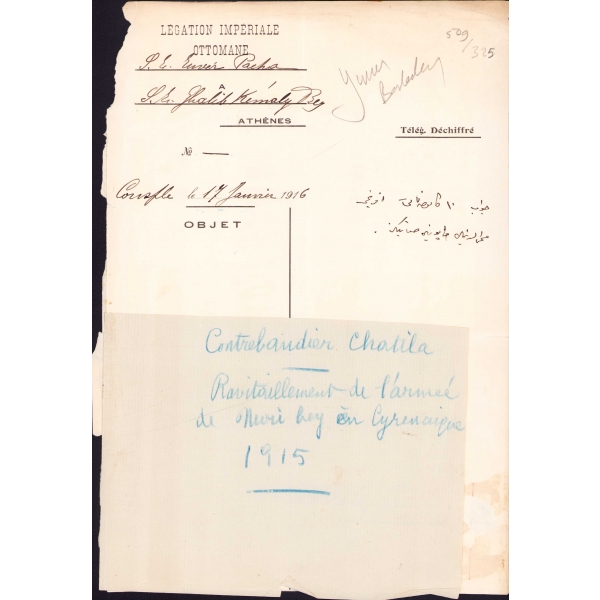 LEGATION IMPÉRIALE
OTTOMANE
509/325
S. E. Enver Pacha
À
S. E. Ghalib Kémaly Bey
ATHÈNES
Télég. Déchiffré
№ —
Consple le 17 Janvier 1916
OBJET
جواب ١٠ كانون ثانى
Contrebandier Chatila
Ravitaillement de l'armée
de Nouri bey en Cyrenaique
1915